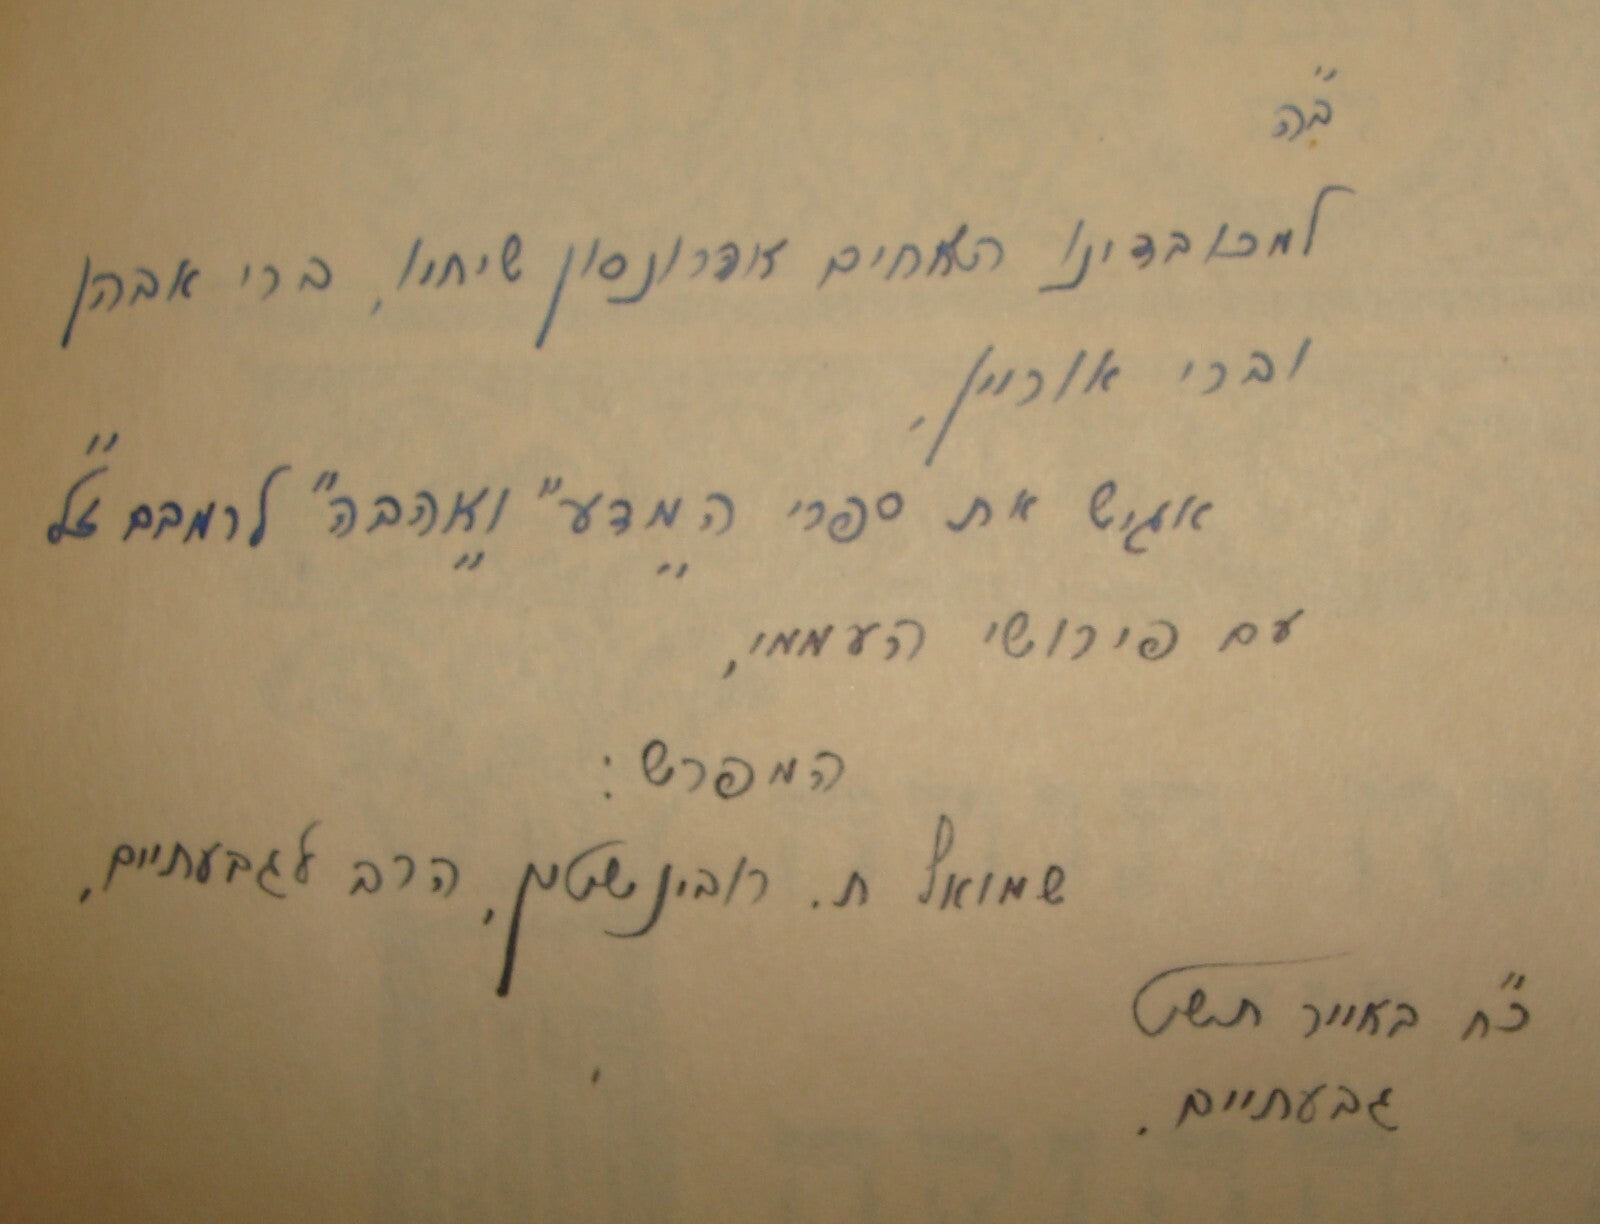 ב"ה
למכובדינו האחים אהרונסון שיחיו, ברי אבהן
וברי אוריין,
אגיש את ספרי "המדע" ו"אהבה" לרמבם ז"ל
עם פירושי העממי,
המפרש:
שמואל ת. רובינשטין, הרב לגבעתיים,
כ"ח באייר תשט
גבעתיים.